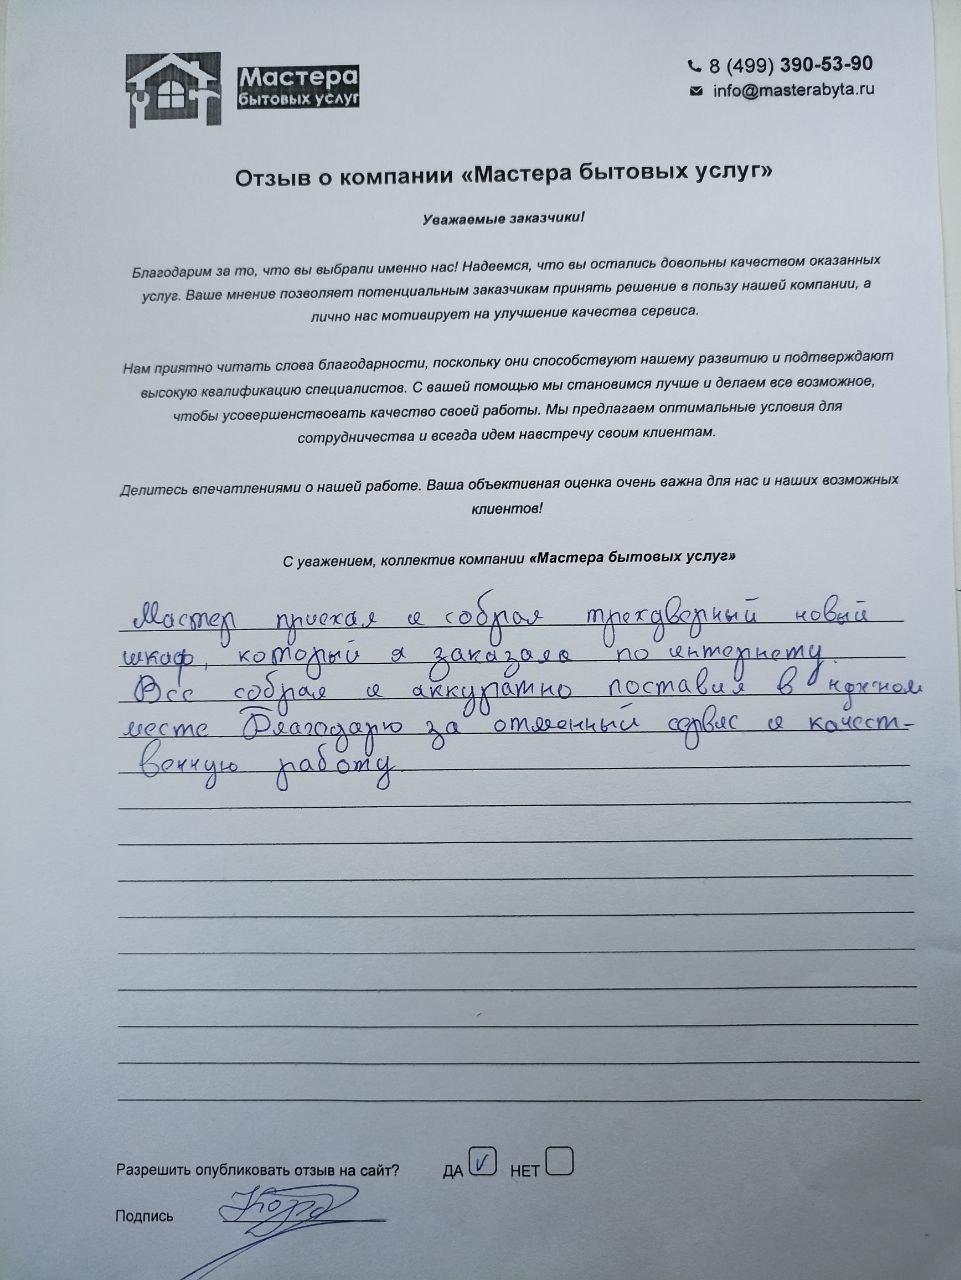 Мастера
бытовых услуг
8 (499) 390-53-90
info@masterabyta.ru
Отзыв о компании «Мастера бытовых услуг»
Уважаемые заказчики!
Благодарим за то, что вы выбрали именно нас! Надеемся, что вы остались довольны качеством оказанных
услуг. Ваше мнение позволяет потенциальным заказчикам принять решение в пользу нашей компании, а
лично нас мотивирует на улучшение качества сервиса.
Нам приятно читать слова благодарности, поскольку они способствуют нашему развитию и подтверждают
высокую квалификацию специалистов. С вашей помощью мы становимся лучше и делаем все возможное,
чтобы усовершенствовать качество своей работы. Мы предлагаем оптимальные условия для
сотрудничества и всегда идем навстречу своим клиентам.
Делитесь впечатлениями о нашей работе. Ваша объективная оценка очень важна для нас и наших возможных
клиентов!
С уважением, коллектив компании «Мастера бытовых услуг»
Мастер приехал и собрал трехдверный новый
шкаф, который я заказала по интернету.
Все собрал и аккуратно поставил в нужном
месте Благодарю за отменный сервис и качест-
венную работу
Разрешить опубликовать отзыв на сайт? ДА НЕТ
Подпись